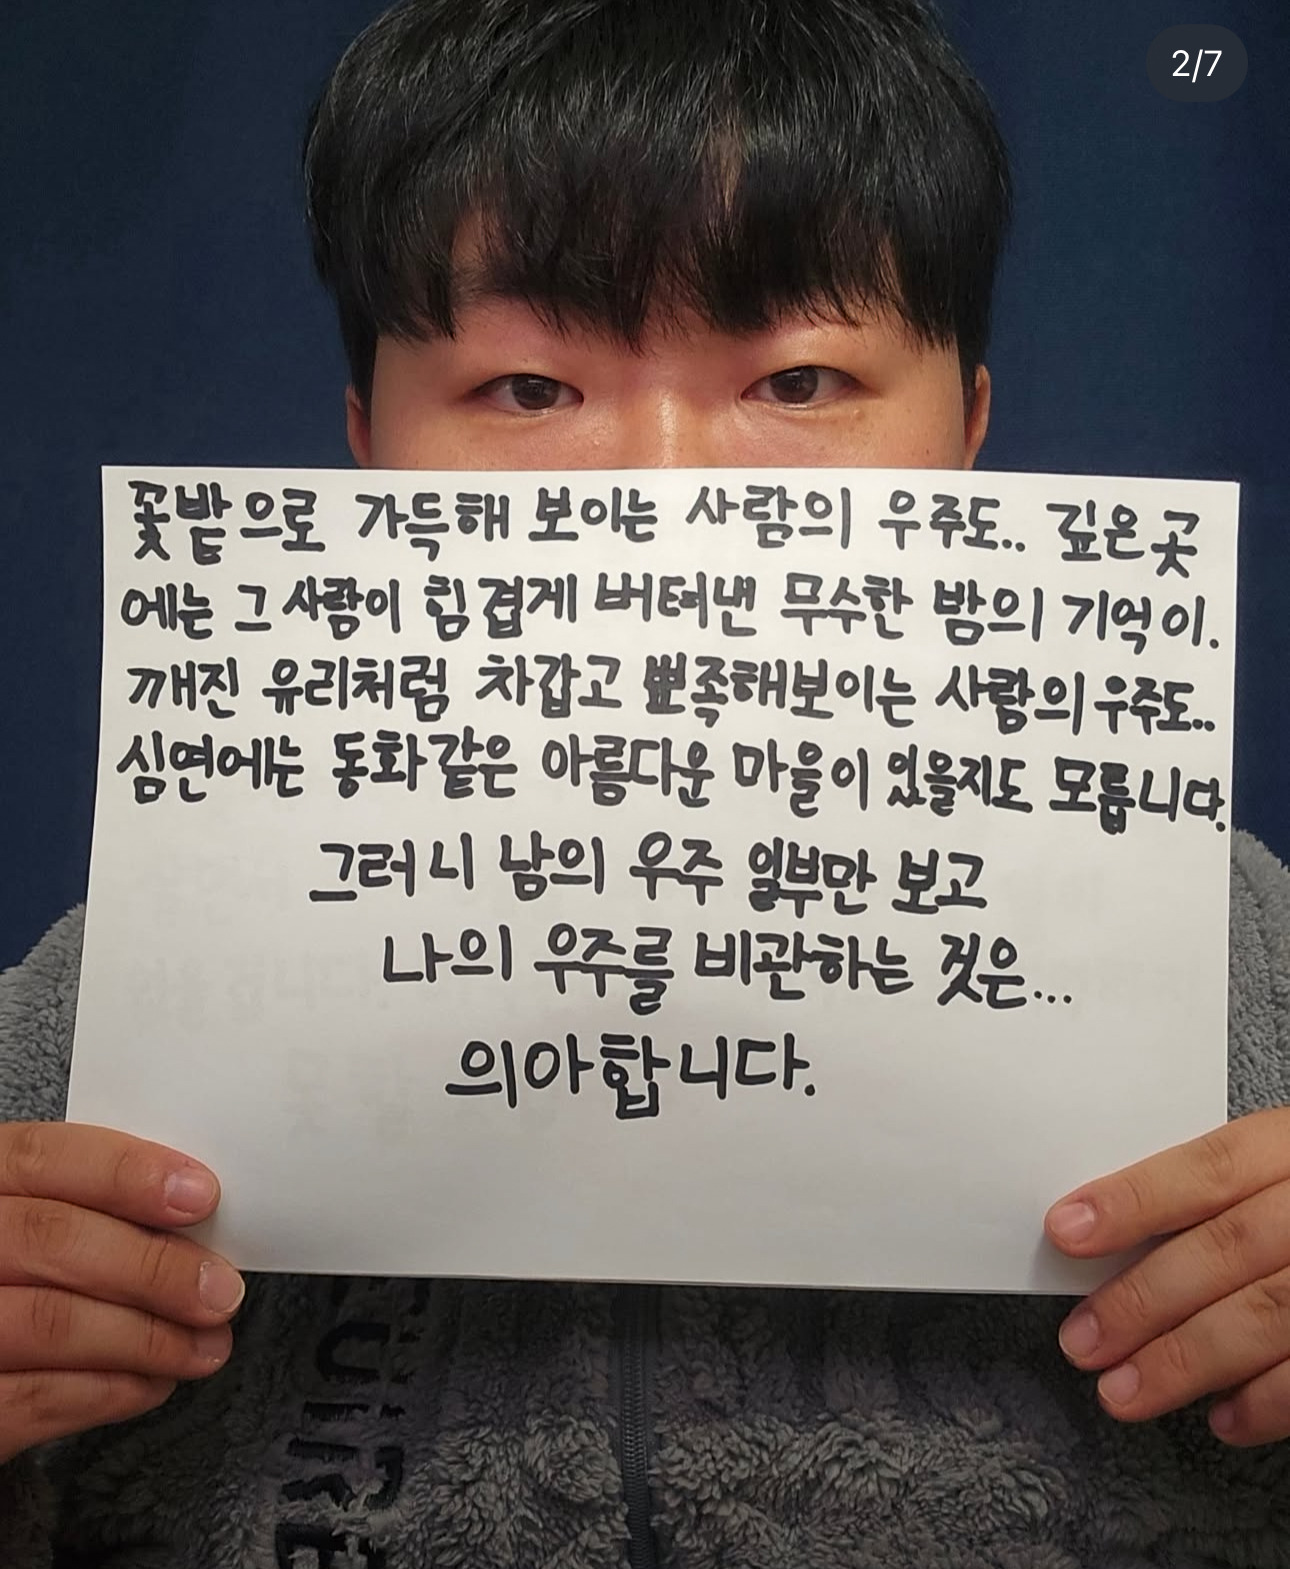 2/7
꽃밭으로 가득해 보이는 사람의 우주도.. 깊은 곳
에는 그 사람이 힘겹게 버텨낸 무수한 밤의 기억이.
깨진 유리처럼 차갑고 뾰족해보이는 사람의 우주도..
심연에는 동화같은 아름다운 마을이 있을지도 모릅니다.
그러니 남의 우주 일부만 보고
나의 우주를 비관하는 것은...
의아합니다.